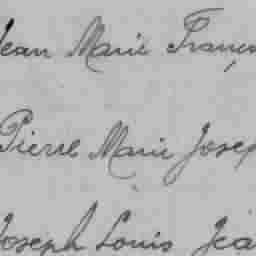 Jean Marie Franç
Pierre Marie Josep
Joseph Louis Jea